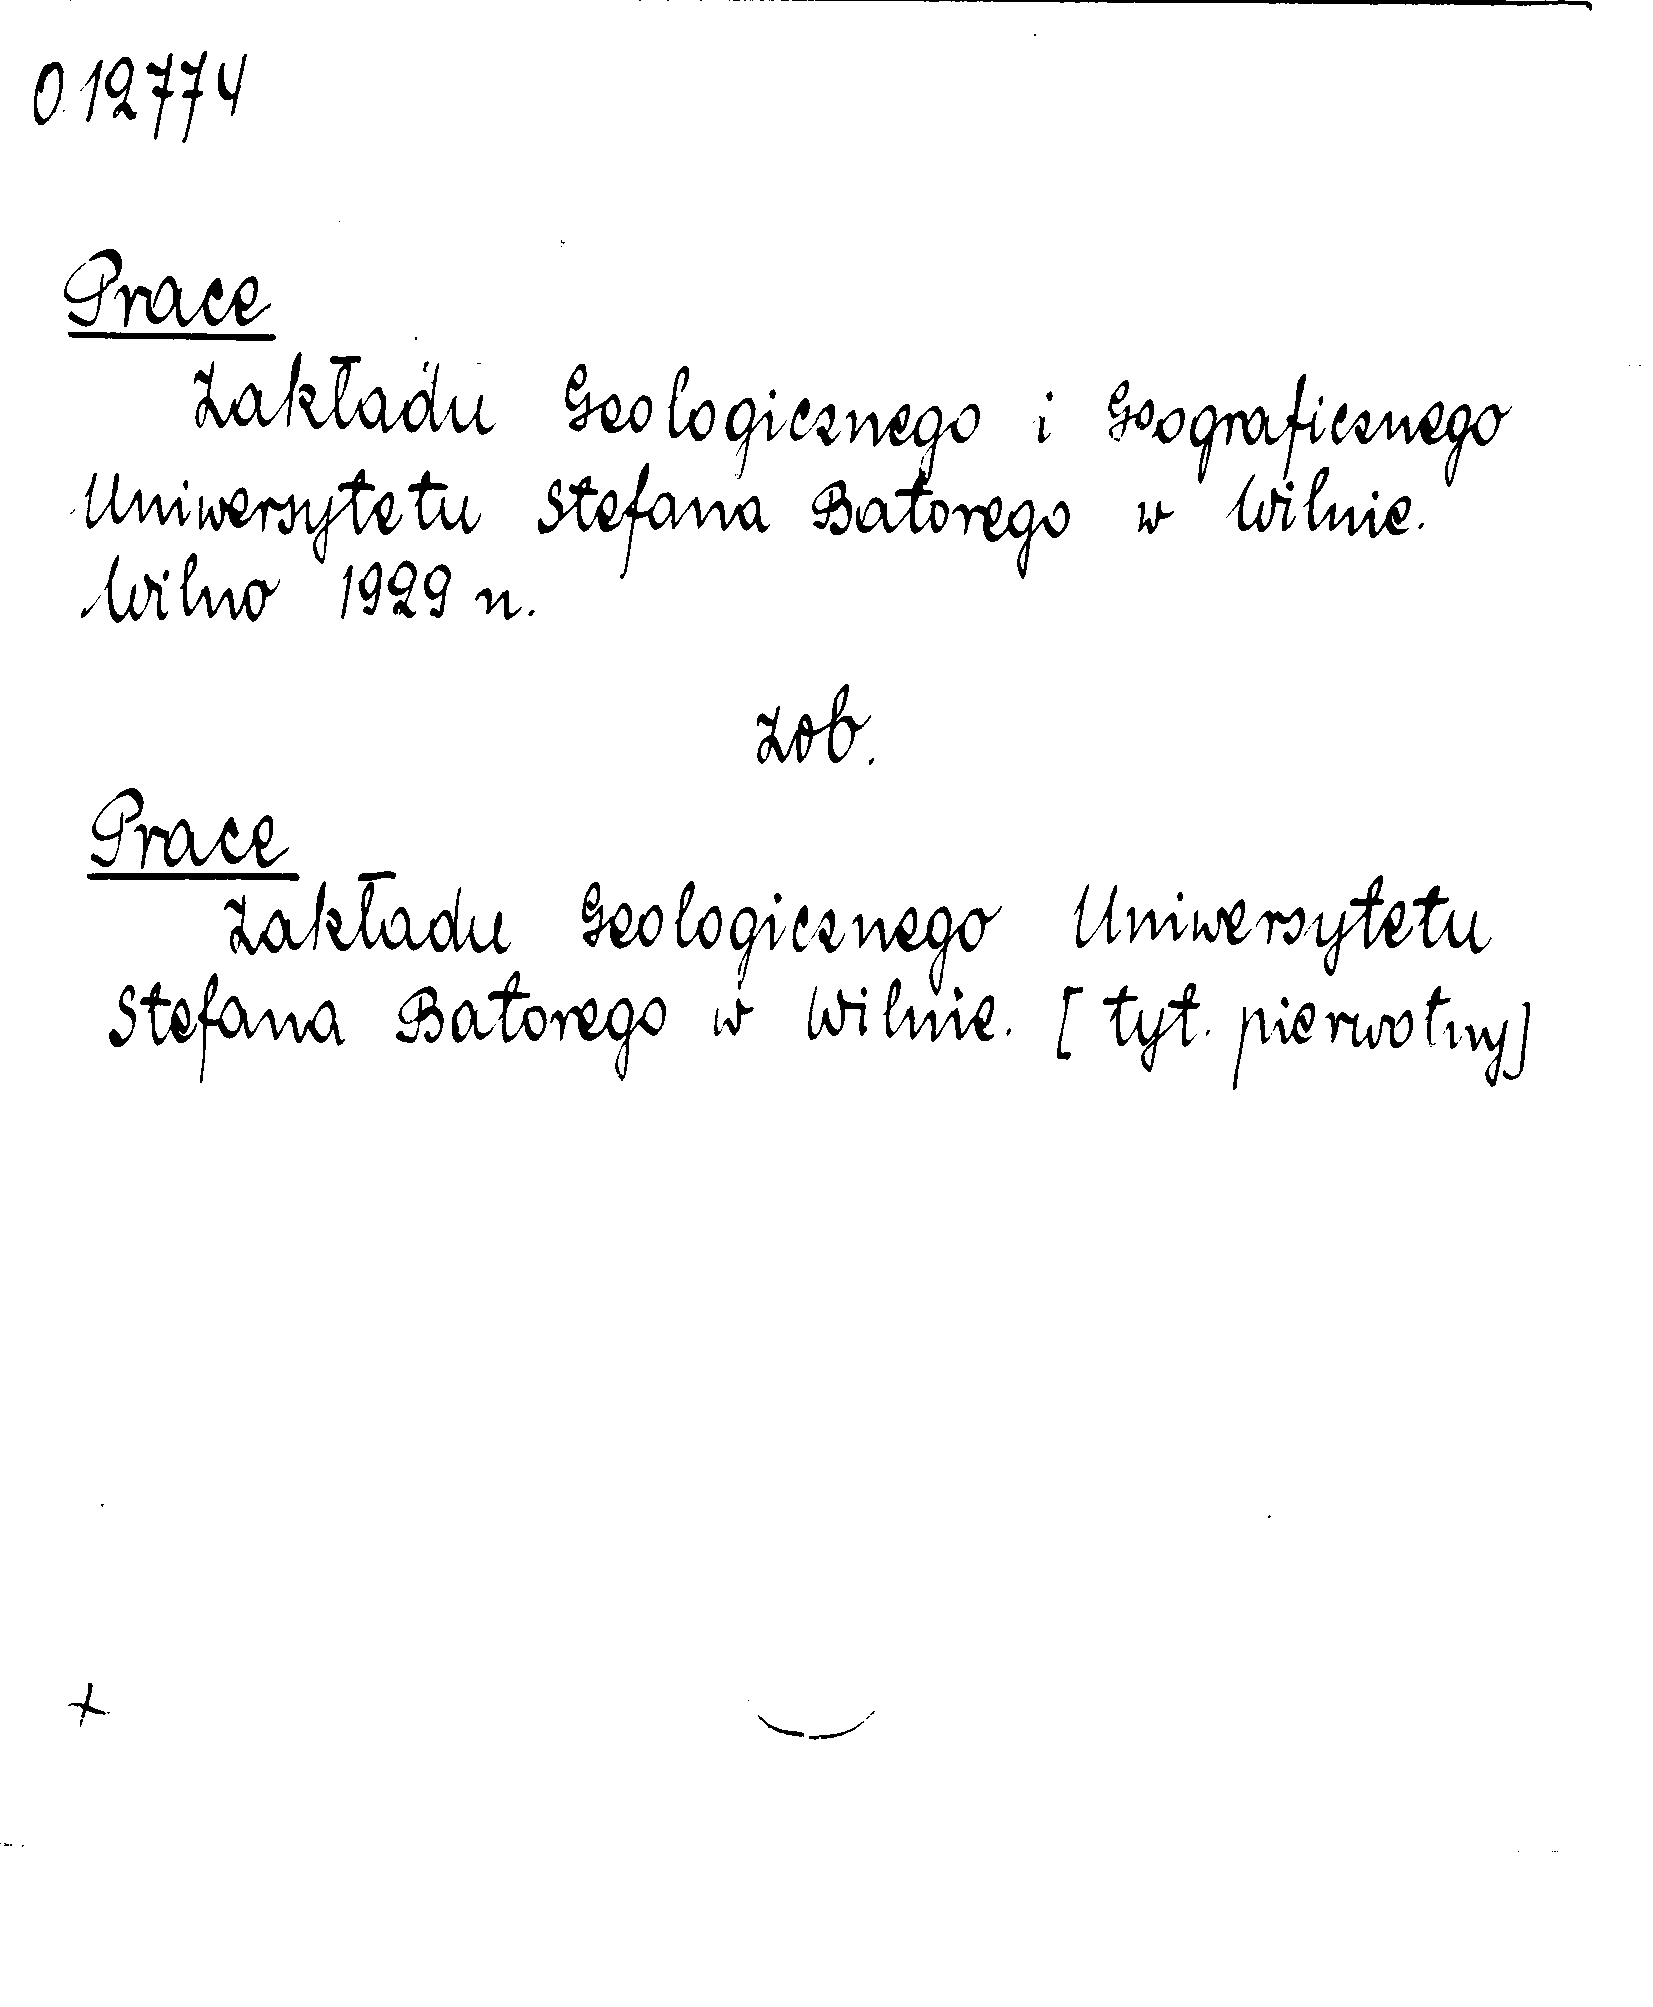 012774
Prace
Zakładu Geologicznego i Geograficznego
Uniwersytetu Stefana Batorego w Wilnie.
Wilno 1929 n.
zob.
Prace
Zakładu Geologicznego Uniwersytetu
Stefana Batorego w Wilnie. [tyt. pierwotny]
+